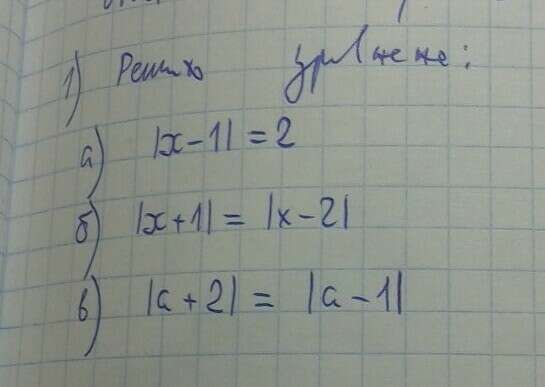 1) Решить уравнение:
а) |x-1| = 2
б) |x+1| = |x-2|
в) |a+2| = |a-1|